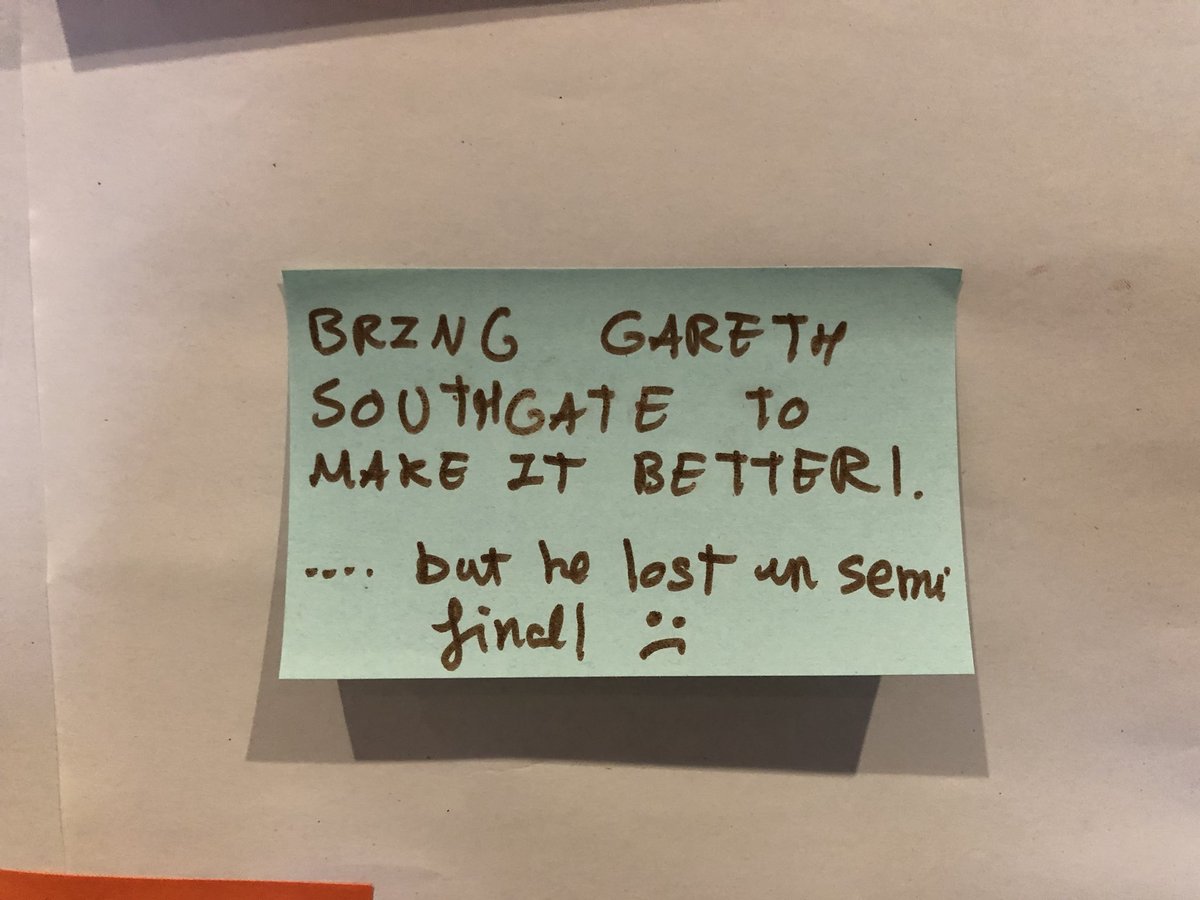 BRING GARETH
SOUTHGATE TO
MAKE IT BETTER!.
.... but he lost in semi
final! :(